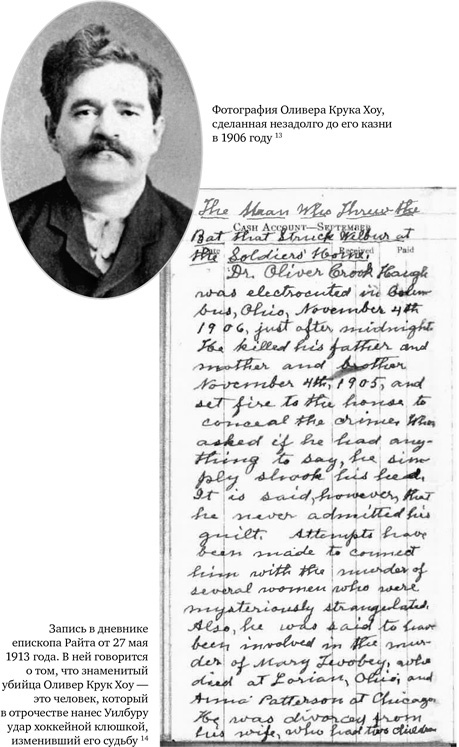 Фотография Оливера Крука Хоу,
сделанная незадолго до его казни
в 1906 году 13
The Man Who Threw the
Cash Account—September
Bat that Struck Wilbur at
Date Received Paid
the Soldiers Home.
Dr. Oliver Crook Haugh
was electrocuted in Colum-
bus, Ohio, November 4th
1906, just after midnight
He killed his father and
mother and brother
November 4th, 1905, and
set fire to the house to
conceal the crime. When
asked if he had any-
thing to say, he sim-
ply shook his head.
It is said, however, that
he never admitted his
guilt. Attempts have
been made to connect
him with the murder of
several women who were
mysteriously strangulated.
Also, he was said to have
been involved in the mur-
der of Mary Twobey, who
died at Lorian, Ohio, and
Anna Patterson at Chicago.
He was divorced from
his wife, who had two children
Запись в дневнике
епископа Райта от 27 мая
1913 года. В ней говорится
о том, что знаменитый
убийца Оливер Крук Хоу —
это человек, который
в отрочестве нанес Уилбуру
удар хоккейной клюшкой,
изменивший его судьбу 14